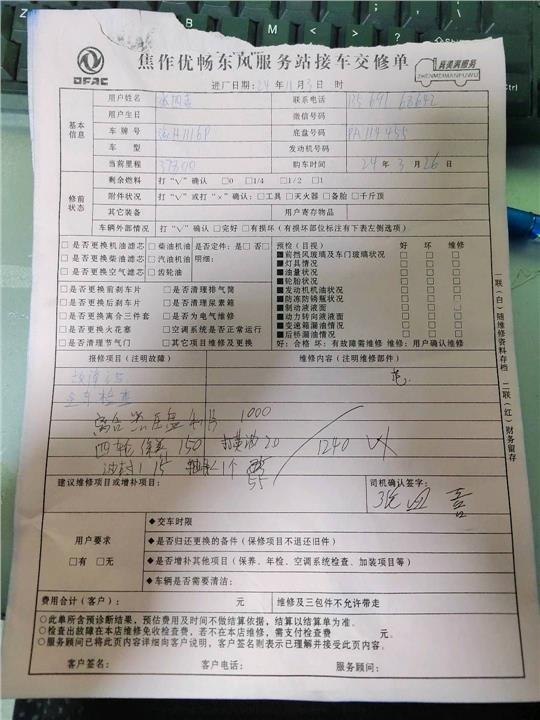 DFAC
焦作优畅东风服务站接车交修单
真美满服务
ZHENMEIMANFUWU
进厂日期：24年11月3日 时
用户姓名 联系电话
用户生日 微信号码
基本信息
车牌号 底盘号码
车 型 发动机号码
当前里程 37800 购车时间 24年3月26日
修前状态
剩余燃料 打"√"确认 □0 □1/4 □1/2 □1
附件状况 打"√"或打"×"确认：□工具 □灭火器 □备胎 □千斤顶
其它装备 用户寄存物品
车辆外部情况 打"√"确认 □完好 □有损坏（有损坏部位标注有下表左侧选项）
□是否更换机油滤芯 □柴油机油 是否定件：是□ 否□
□是否更换柴油滤芯 □汽油机油 明细：
□是否更换空气滤芯 □齿轮油
□是否更换前刹车片 □是否清理排气筒
□是否更换后刹车片 □是否清理尿素箱
□是否更换离合三件套 □是否为电气维修
□是否更换火花塞 □空调系统是否正常运行
□是否清理节气门 □其它项目维修及更换
预检（目视） 好 坏 维修
■前挡风玻璃及车门玻璃状况 □ □ □
■灯具情况 □ □ □
■油量状况 □ □ □
■轮胎状况 □ □ □
■发动机机油状况 □ □ □
■防冻防锈瓶状况 □ □ □
■制动液液面 □ □ □
■动力转向液液面 □ □ □
■变速箱漏油情况 □ □ □
■后桥漏油情况 □ □ □
好：合格 坏：有故障需维修 维修：用户确认维修
报修项目（注明故障） 维修内容（注明维修部件）
全车检查
离合 压盘 1000
四轮保养 150 打黄油 20
1240
15 1个
55
建议维修项目或增补项目：
司机确认签字：
张四喜
用户要求
□有 □无
◆交车时限
◆是否归还更换的备件（保修项目不退还旧件）
◆是否增补其他项目（保养、年检、空调系统检查、加装项目等）
◆车辆是否需要清洁：
费用合计（客户）： 元 维修及三包件不允许带走
○此单所含预诊断结果，预估费用及时间不做结算依据，结算以结算单为准。
○检查出故障在本店维修免收检查费，若不在本店维修，需支付检查费 元。
○服务顾问已将此页内容详细向客户说明，客户签名则表示已理解并接受此页内容。
客户签名： 客户电话： 服务顾问：
一联（白）随维修资料存档 二联（红）财务留存